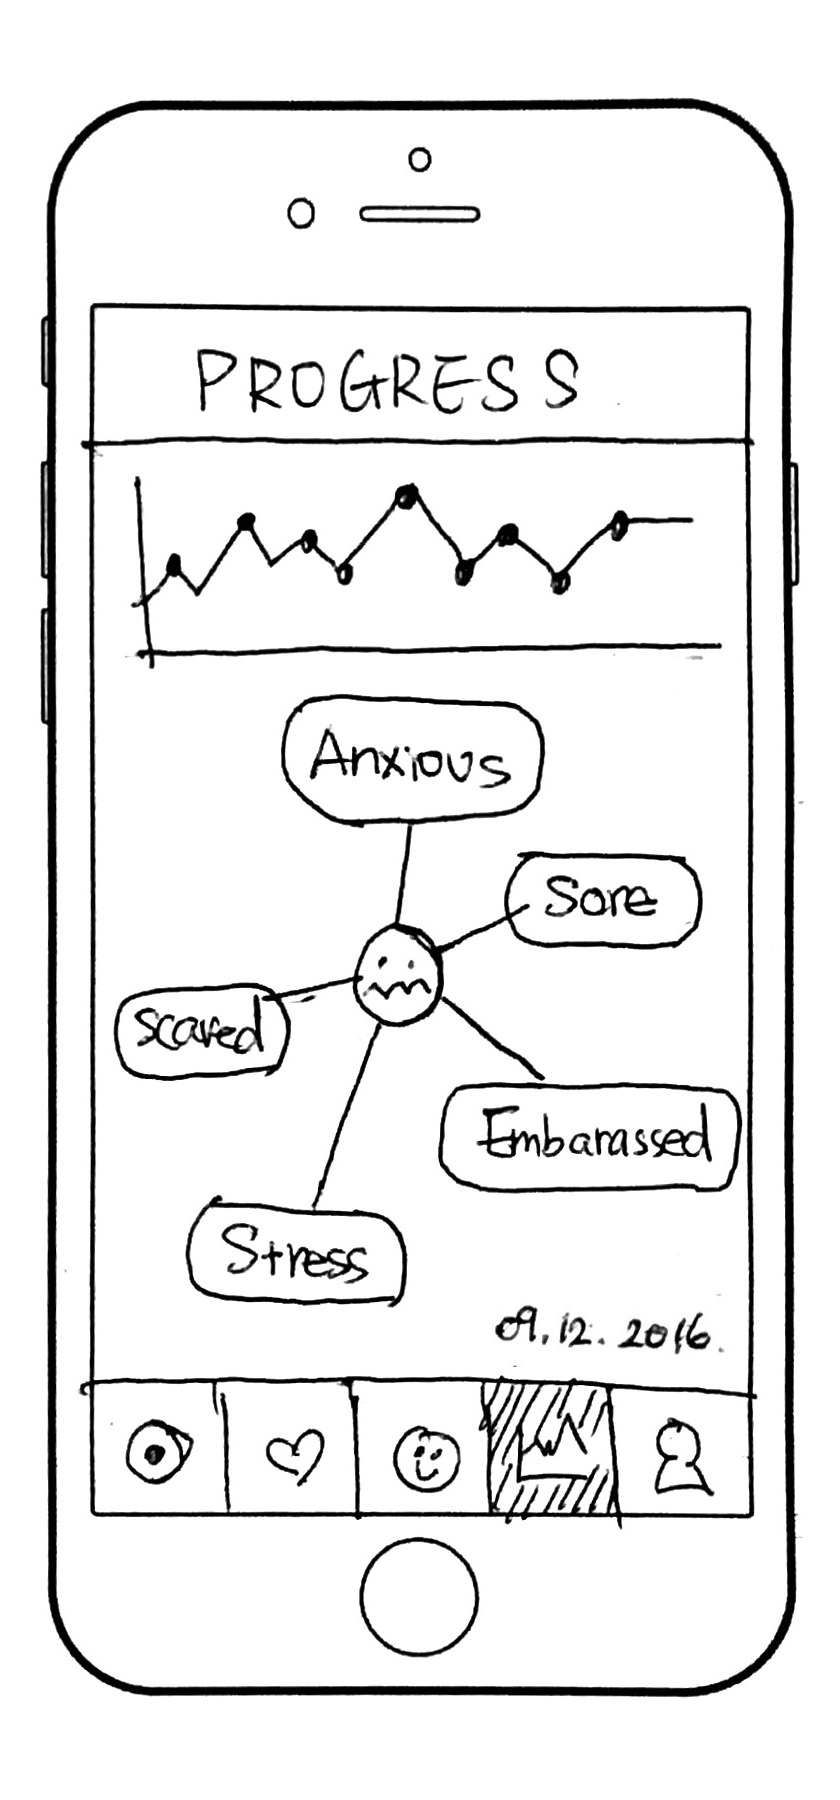 PROGRESS
Anxious
Sore
scared
Embarassed
Stress
09.12.2016.